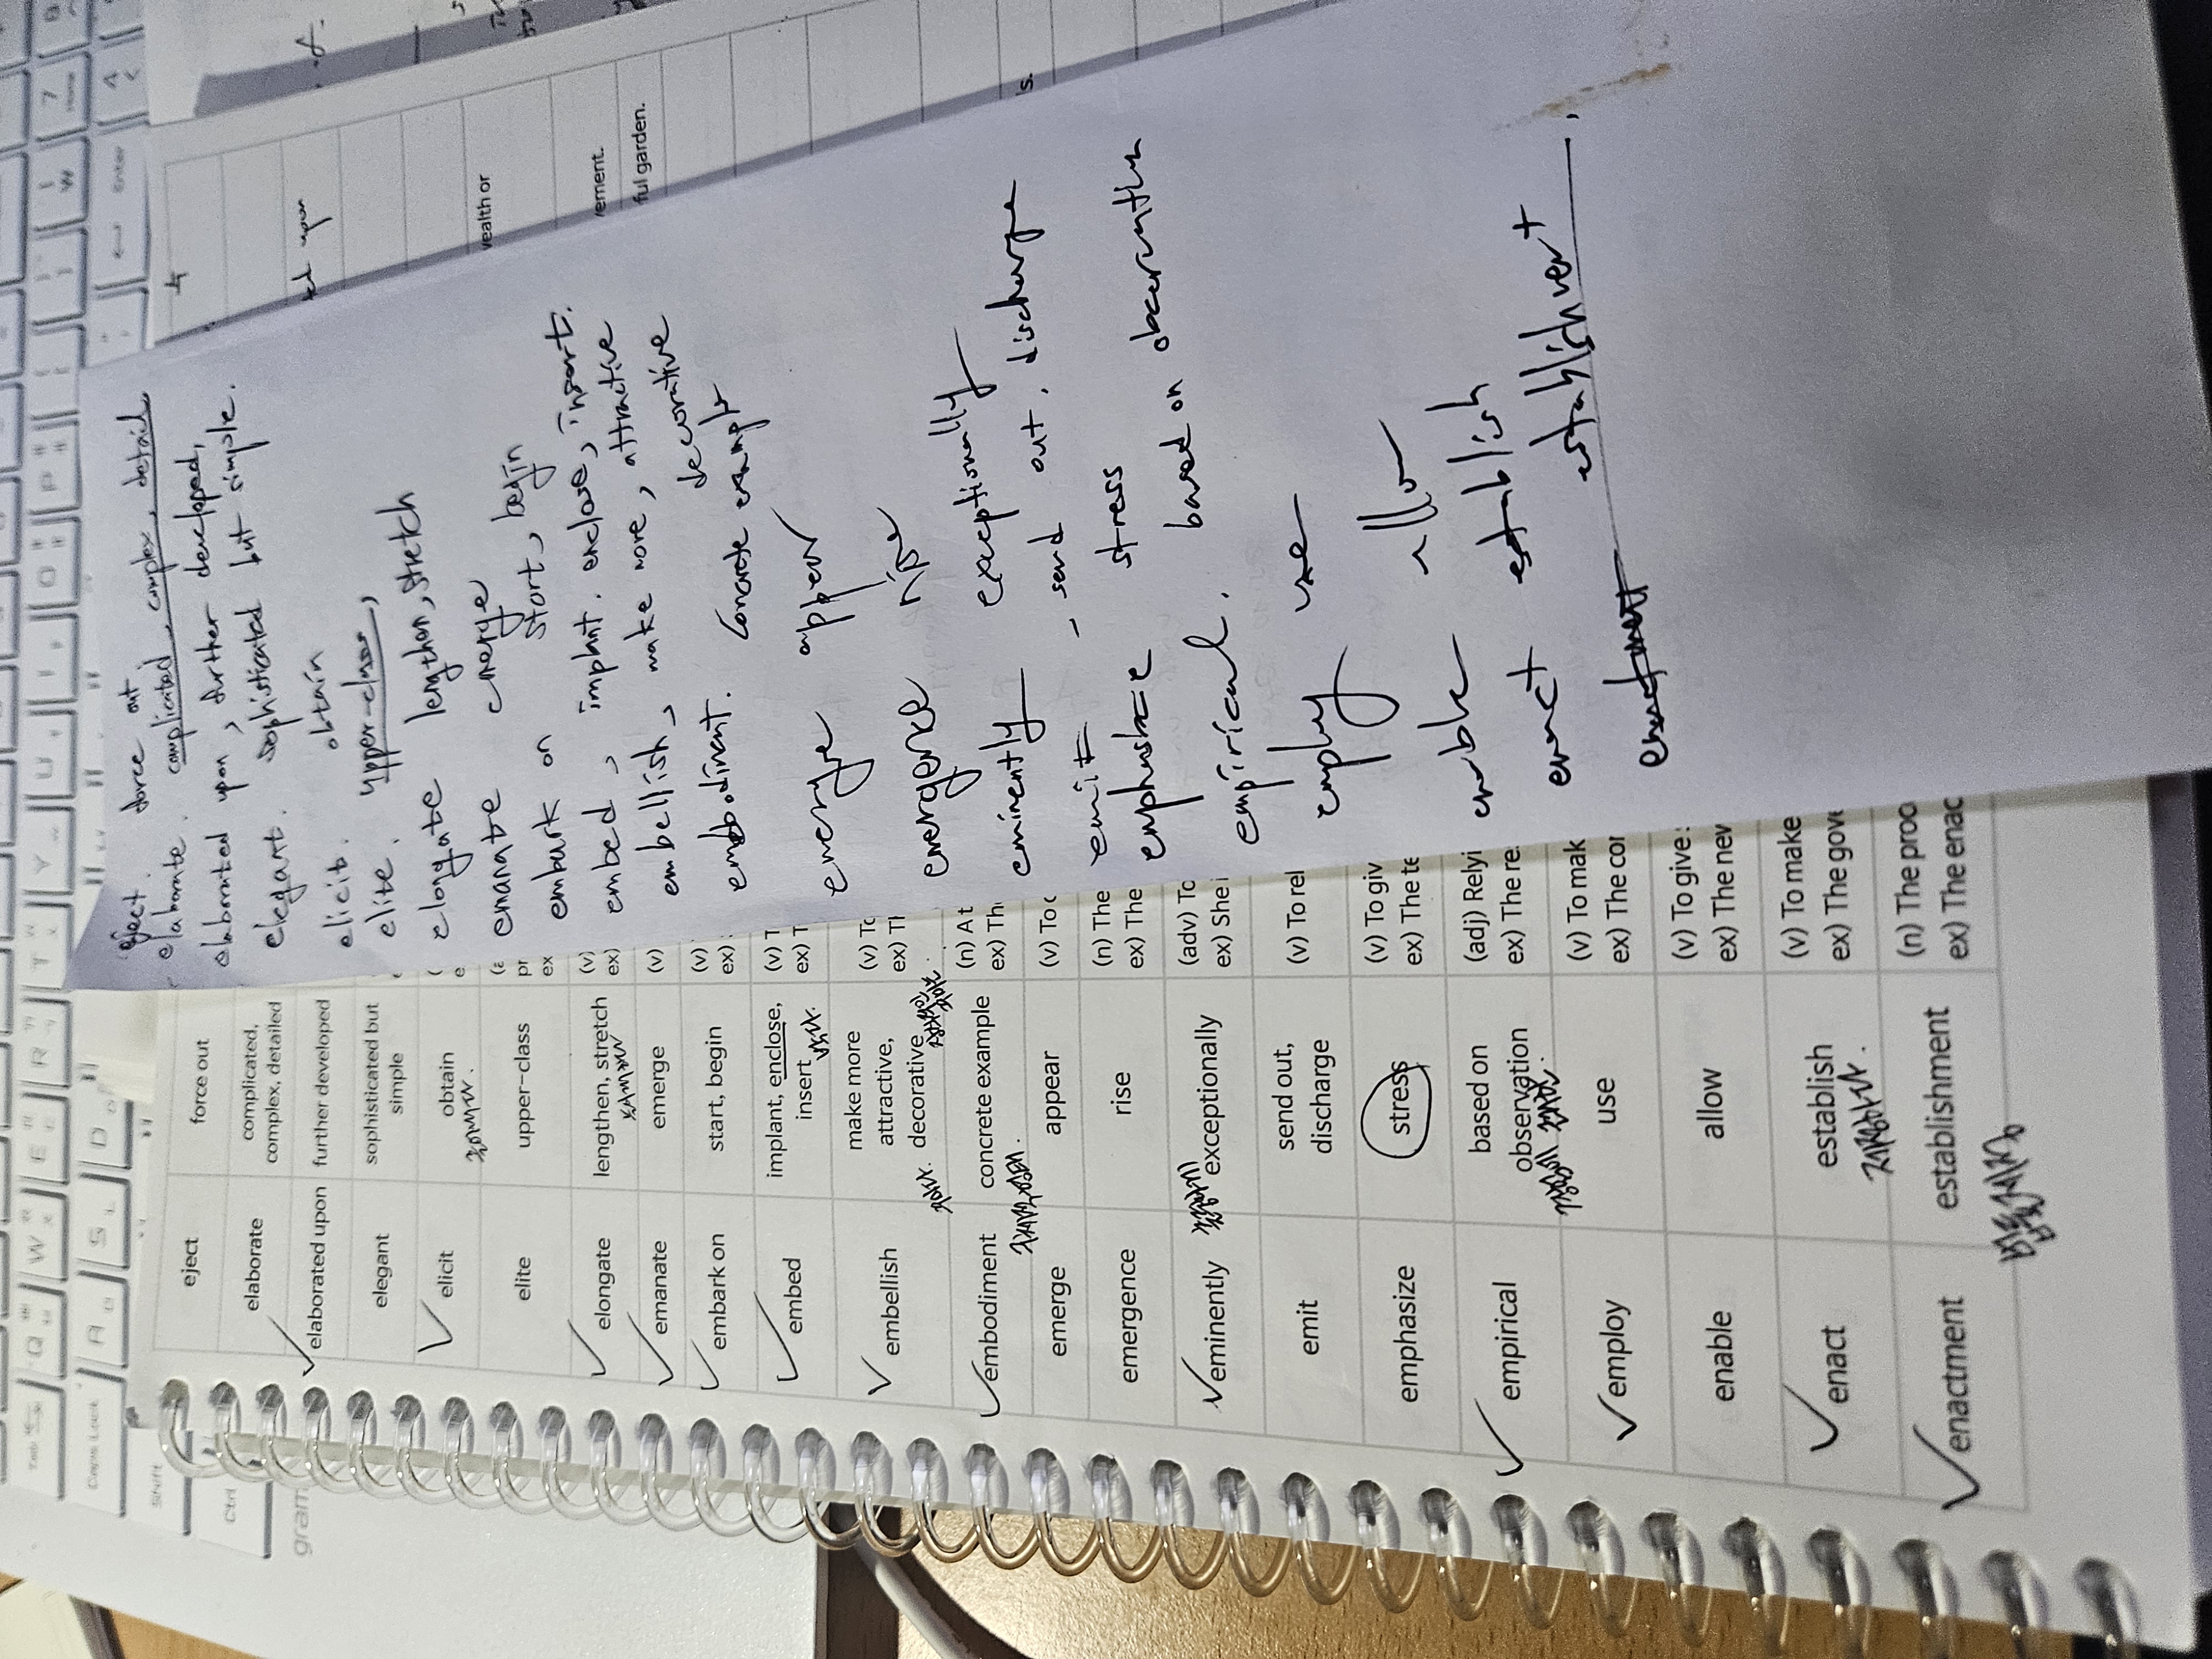 eject. force out
elaborate. complicated, complex, detail
elaborated upon, further developed,
elegant. sophisticated but simple.
elicit. obtain
elite. upper-class,
elongate lengthen, stretch
emanate emerge
embark on start, begin
embed, implant. enclose, insert.
embellish, make more, attractive
decorative
embodiment. concrete example
emerge appear
emergence rise
eminently exceptionally
emit - send out, discharge
emphasize stress
empirical. based on
employ use
enable allow
enact establish
establishment
eject force out
elaborate complicated,
complex, detailed
elaborated upon further developed
elegant sophisticated but
simple
elicit obtain
elite upper-class
elongate lengthen, stretch (v)
ex)
emanate emerge (v)
embark on start, begin (v)
ex)
embed implant, enclose, (v) T
insert ex) T
embellish make more (v) To
attractive, ex) Th
decorative
embodiment concrete example (n) A t
ex) Th
emerge appear (v) To
emergence rise (n) The
ex) The
eminently exceptionally (adv) To
ex) She
emit send out, (v) To rel
discharge
emphasize stress (v) To giv
ex) The te
empirical based on (adj) Relyi
observation ex) The re
employ use (v) To mak
ex) The cor
enable allow (v) To give
ex) The new
enact establish (v) To make
ex) The gov
enactment establishment (n) The proc
ex) The enac
vealth or
ement.
ful garden.
ls.
gram
Tab
Q W E R T Y U I O P
Caps Lock A S D
Shift
Ctrl
Enter